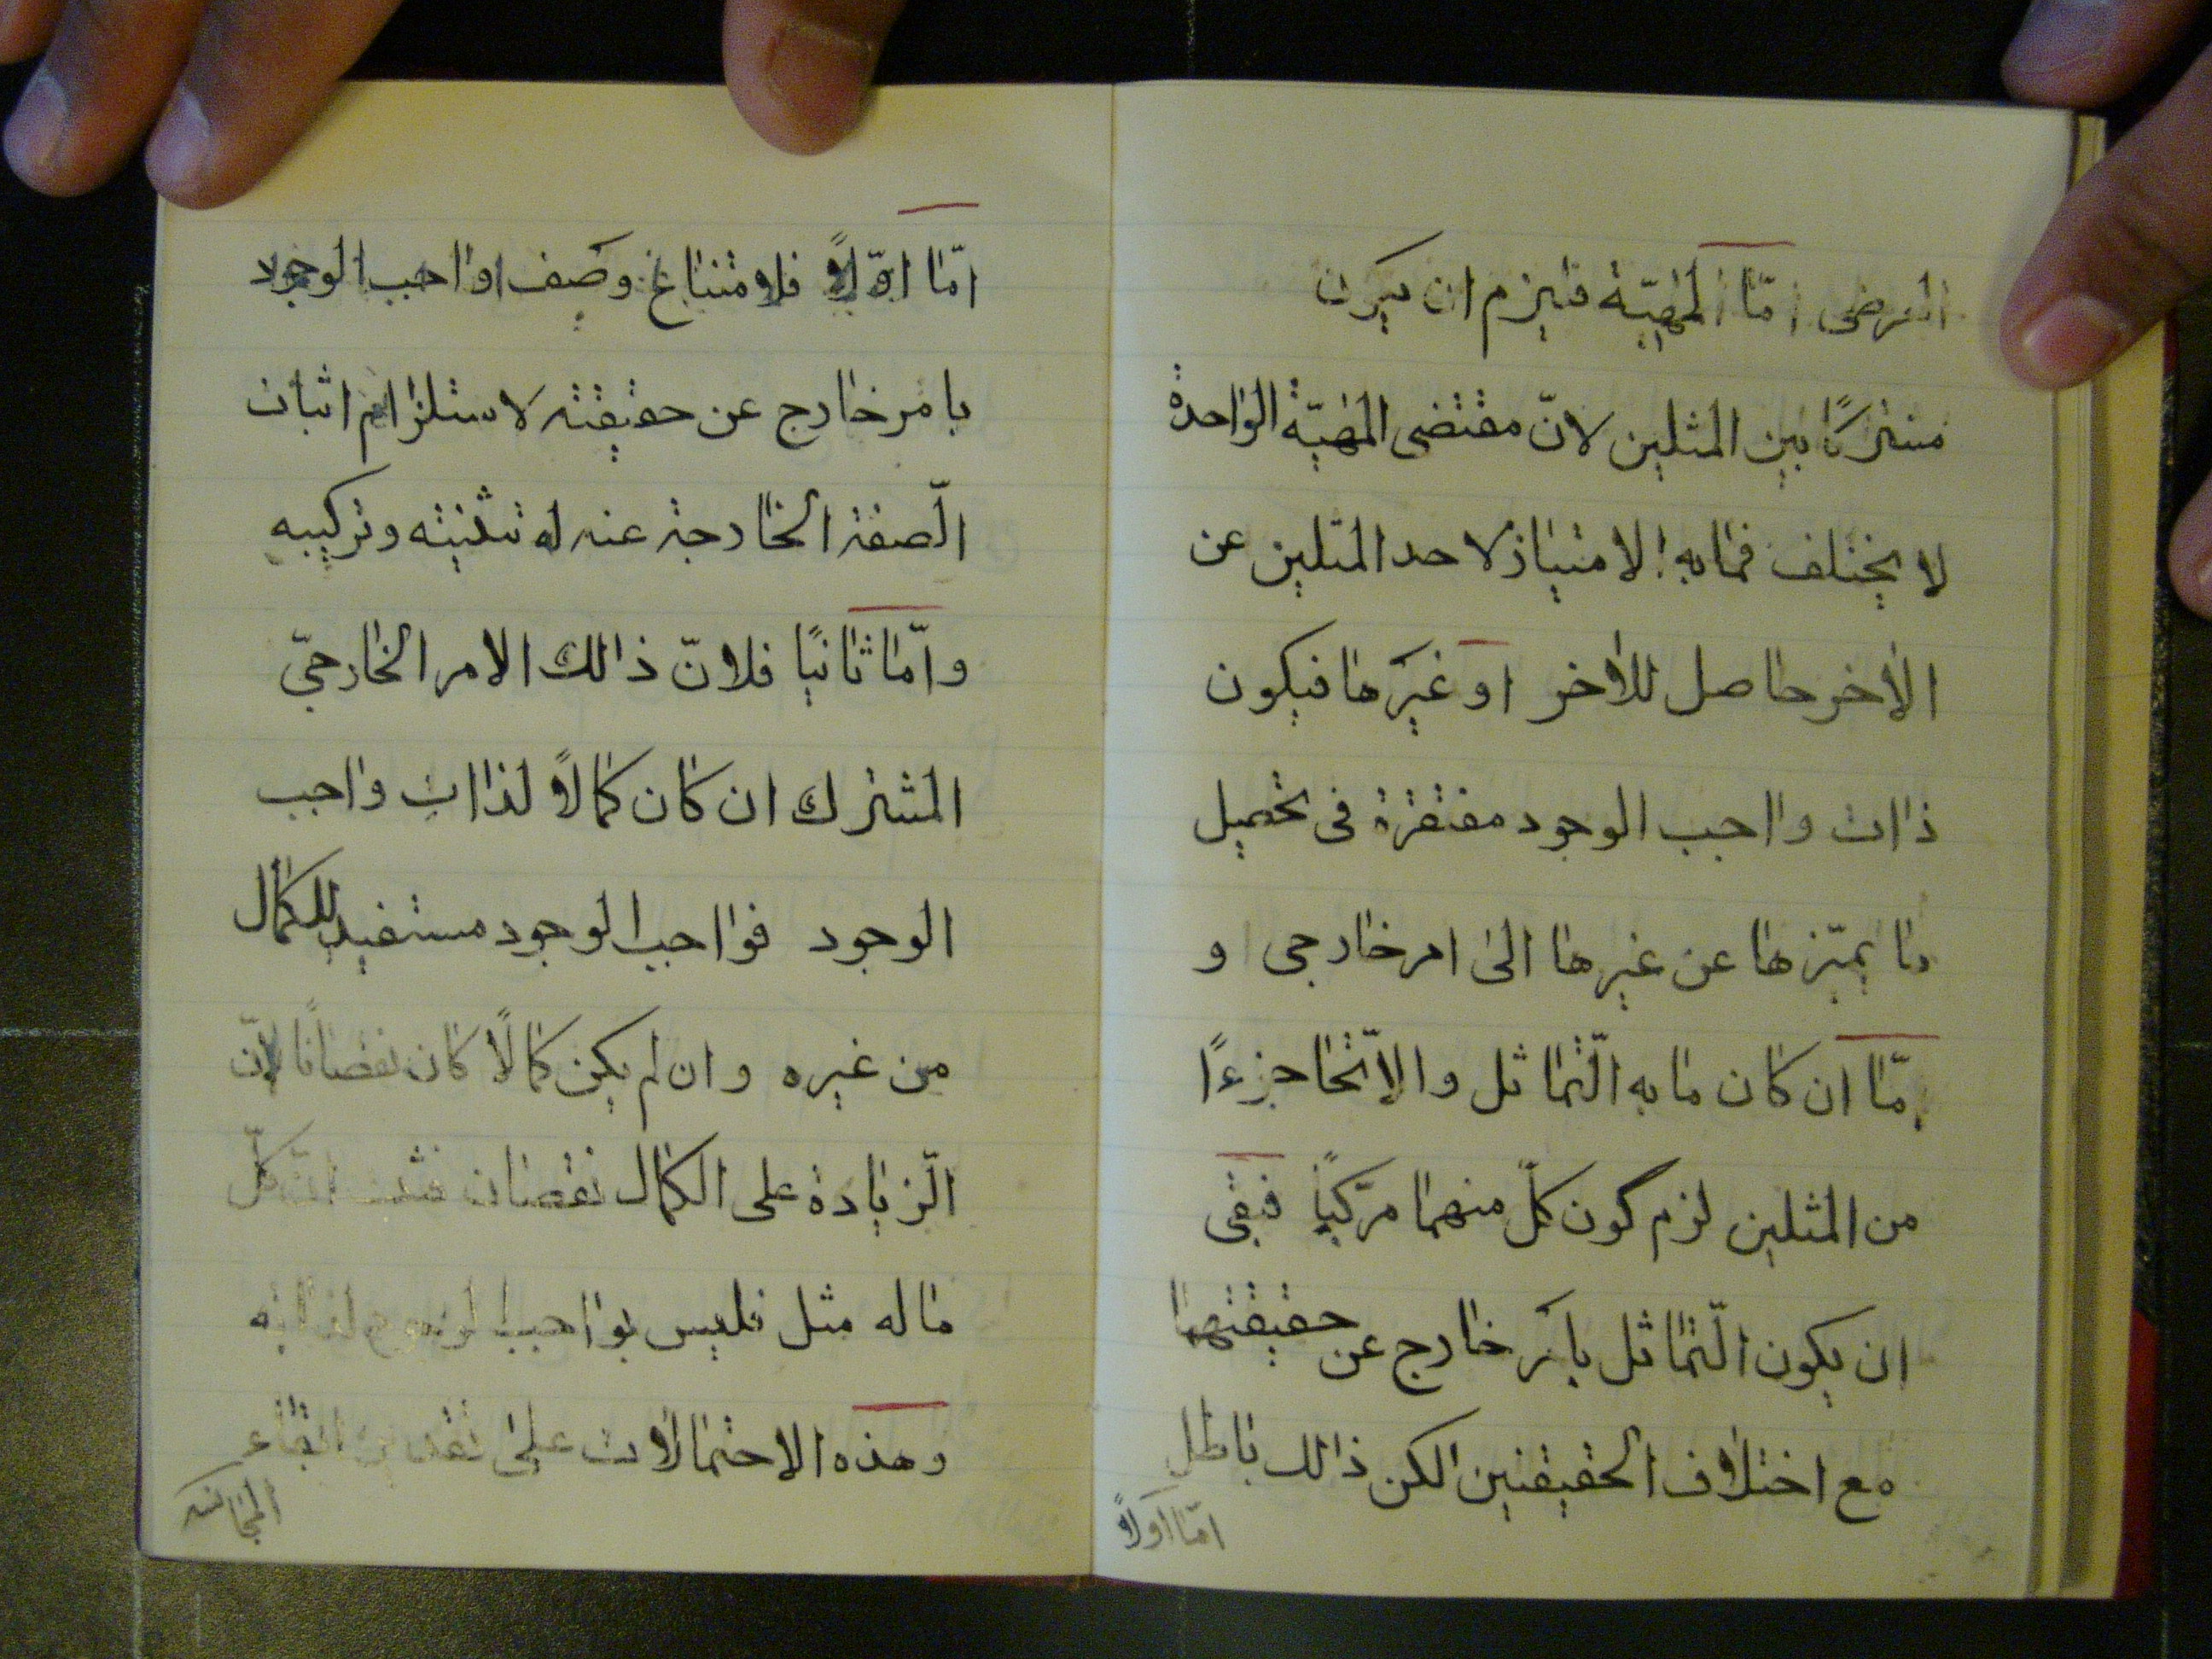 العرضى امّا المهيّة فيلزم ان يكون
مشتركًا بين المثلين لانّ مقتضى المهيّة الواحدة
لا يختلف فمابه الامتياز لاحد المثلين عن
الاخر حاصل للاخر او غيرها فيكون
ذاات وااجب الوجود مفتقرة فى تحصيل
ما يميّزها عن غيرها الى امر خارجى و
امّا ان كان مابه التّماثل والاتّحا جزءًا
من المثلين لزم كون كلّ منهما مركّبًا فبقى
ان يكون التّماثل بامر خارج عن حقيقتهما
مع اختلاف الحقيقتين الكن ذالك باطل
امّا اوّلاً
امّا اوّلاً فلامتناع وصف وااجب الوجود
بامر خارج عن حقيقته لاستلزام اثبات
الّصفة الخارجة عنه له تثنيته وتركيبه
وامّا ثانيًا فلانّ ذالك الامر الخارجىّ
المشترك ان كان كمالاً لذاات وااجب
الوجود فوااجب الوجود مستفيد للكمال
من غيره وان لم يكن كمالًا كان نقصانًا لانّ
الّزيادة على الكمال نقصان فثبت انّ كلّ
ماله مثل فليس بوااجب
وهذه الاحتمالات على تقدير انتفاء
المجانسه